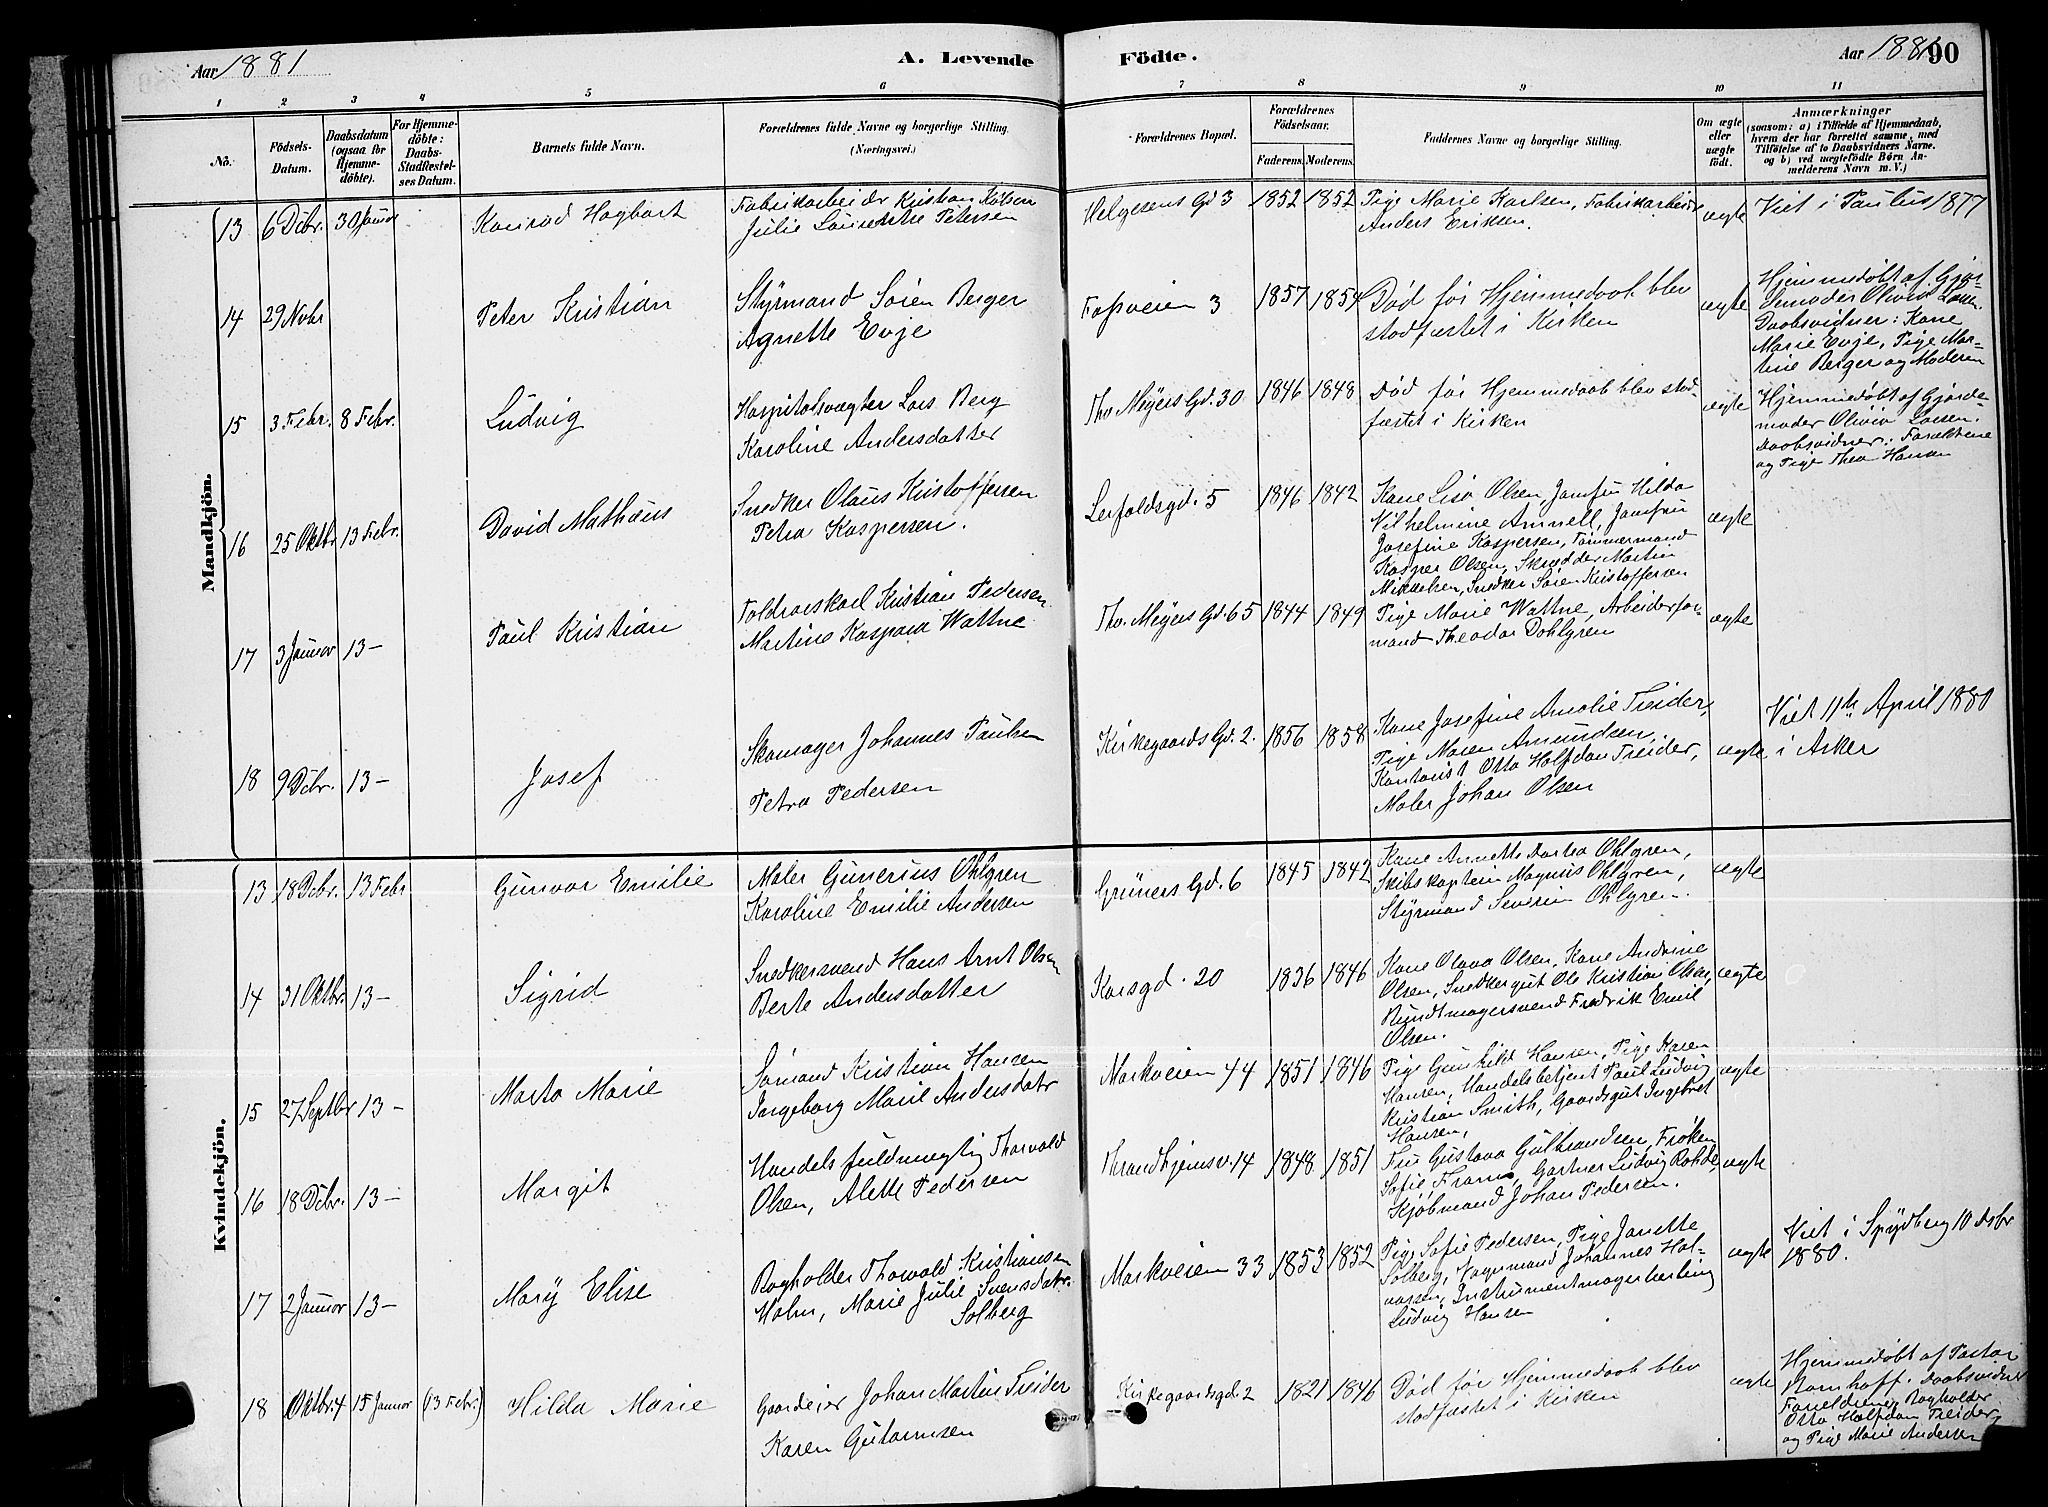 Aar 1881
A. Levende
Födte.
Aar 1881
90
1 2 3 4 5 6 7 8 9 10 11
No.
Födsels-
Datum.
Daabsdatum
(ogsaa for
Hjemme-
döbte).
For Hjemme-
döbte:
Daabs-
Stadfæstel-
ses Datum.
Barnets fulde Navn.
Forældrenes fulde Navne og borgerlige Stilling.
(Næringsvei.)
Forældrenes Bopæl.
Forældrenes
Födselsaar.
Faderens. Moderens.
Faddernes Navne og borgerlige Stilling.
Om ægte
eller
uægte
födt.
Anmærkninger
(saasom: a) i Tilfælde af Hjemmedaab,
hvem der har forrettet samme, med
Tilföielse af to Daabsvidners Navne.
og b) ved uægtefödte Børn An-
melderens Navn m. V.)
Mandkjön.
13 6 Dcbr. 30 Januar Konrad Hagbart
Fabrikarbeider Kristian
Julie Petersen
Helgesens Gd 3 1852 1852
Pige Marie Karlsen, Fabrikarbeider
Anders Eriksen.
ægte
Viet i Paulus 1877
14 29 Nvbr Peter Kristian
Styrmand Søren Berger
Agnette Evje
Fossveien 3 1857 1854
Død før Hjemmedaab blev
stadfæstet i Kirken
ægte
Hjemmedøbt af Gjor-
demoder Olivia
Daabsvidner: Kone
Marie Evje, Pige Mar-
tine Berger og Moderen
15 3 Febr. 8 Febr. Ludvig
Hospitalsvægter Lars Berg
Karoline Andersdatter
Thv Meyers Gd. 30 1846 1848
Død før Hjemmedaab blev stad-
fæstet i Kirken
ægte
Hjemmedøbt af Gjorde-
moder Olivia
Daabsvidner: Forældrene
og Pige Thea Hansen
16 25 Oktbr. 13 Febr. David Mathæus
Snedker Olaus Kristoffersen
Petra Kaspersen.
Leirfaldsgd. 5 1846 1842
Kone Lisa Olsen, Jomfru Hilda
Vilhelmine Amnell, Jomfru
Josefine Kaspersen, Tømmermand
Kasper Olsen, Skrædder Martin
Mikkelsen, Snedker Søren Kristoffersen
ægte
17 3 Januar 13 – Paul Kristian
Toldroerskarl Kristian Pedersen
Martine Kaspara Wattne
Thv. Meyers Gd. 65 1844 1849
Pige Marie Wattne, Arbeiderfor-
mand Theodor Dahlgren
ægte
18 9 Dcbr. 13 – Josef
Skomager Johannes Paulsen
Petra Pedersen
Kirkegaards Gd. 2. 1856 1858
Kone Josefine Amalie Treider,
Pige Maren Amundsen,
Kontorist Otto Halfdan Treider,
Maler Johan Olsen
ægte
Viet 11te April 1880
i Asker
Kvindekjön.
13 18 Dcbr. 13 Febr Gunvor Emilie
Maler Gunerius Ohlgren
Karoline Emilie Andersen
Grüners Gd. 6 1845 1842
Kone Annette Dortea Ohlgren,
Skibskaptein Magnus Ohlgren,
Styrmand Severin Ohlgren.
ægte
14 31 Oktbr. 13 – Sigrid
Snedkersvend Hans Arnt Olsen
Berte Andersdatter
Korsgd. 20 1836 1846
Kone Olava Olsen, Kone Andrine
Olsen, Snedkergut Ole Kristian Olsen,
Buntmagersvend Fredrik Emil
Olsen.
ægte
15 27 Septbr 13 – Marta Marie
Sømand Kristian Hansen
Ingeborg Marie Andersdatr
Markveien 44 1851 1846
Pige Gunhild Hansen, Pige Karen
Hansen, Handelsbetjent Paul Ludvig
Kristian Smith, Gaardsgut Ingebret
Hansen,
ægte
16 18 Dcbr. 13 – Margit
Handelsfuldmægtig Thorvald
Olsen, Alette Pedersen
Thrandhjemsv. 14 1848 1851
Fru Gustava Gulbrandsen, Frøken
Sofie Gartner Ludvig Rohde,
Kjøbmand Johan Pedersen.
ægte
17 2 Januar 13 – Mary Elise
Bogholder Thorvald Kristiansen
Holm, Marie Julie Svensdatr.
Solberg
Markveien 33 1853 1852
Pige Sofie Pedersen, Pige Janette
Solberg, Vognmand Johannes Hal-
vorsen, Instrumentmagerlærling
Ludvig Hansen
ægte
Viet i Spydberg 10 Dsbr
1880.
18 Oktbr. 4 15 Januar (13 Febr.) Hilda Marie
Gaardeier Johan Martin Treider
Karen
Kirkegaardsgd. 2 1821 1846
Død før Hjemmedaab blev
stadfæstet i Kirken
ægte
Hjemmedøbt af Pastor
Daabsvidner
Forældrene, Bogholder
Otto Halfdan Treider
og Pige Marie Andersen